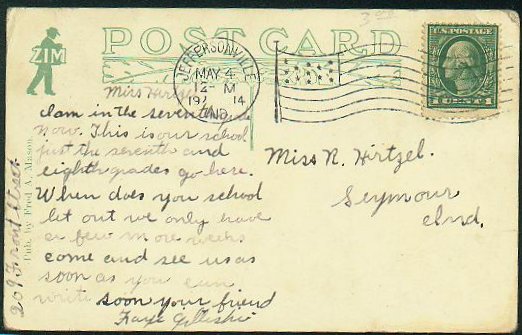 POST CARD
ZIM
JEFFERSONVILLE
MAY 4
12- M
1914
IND.
U.S. POSTAGE
1 CENT 1
Miss Hirtzel
I am in the seventh grade
now. This is our school
just the seventh and
eighth grades go here.
When does you school
let out we only have
a few more weeks
come and see us as
soon as you can
write soon your friend
Faye Gilles
Miss R. Hirtzel.
Seymour
Ind.
Pub. by Fred A. Mason.
209 Front Street